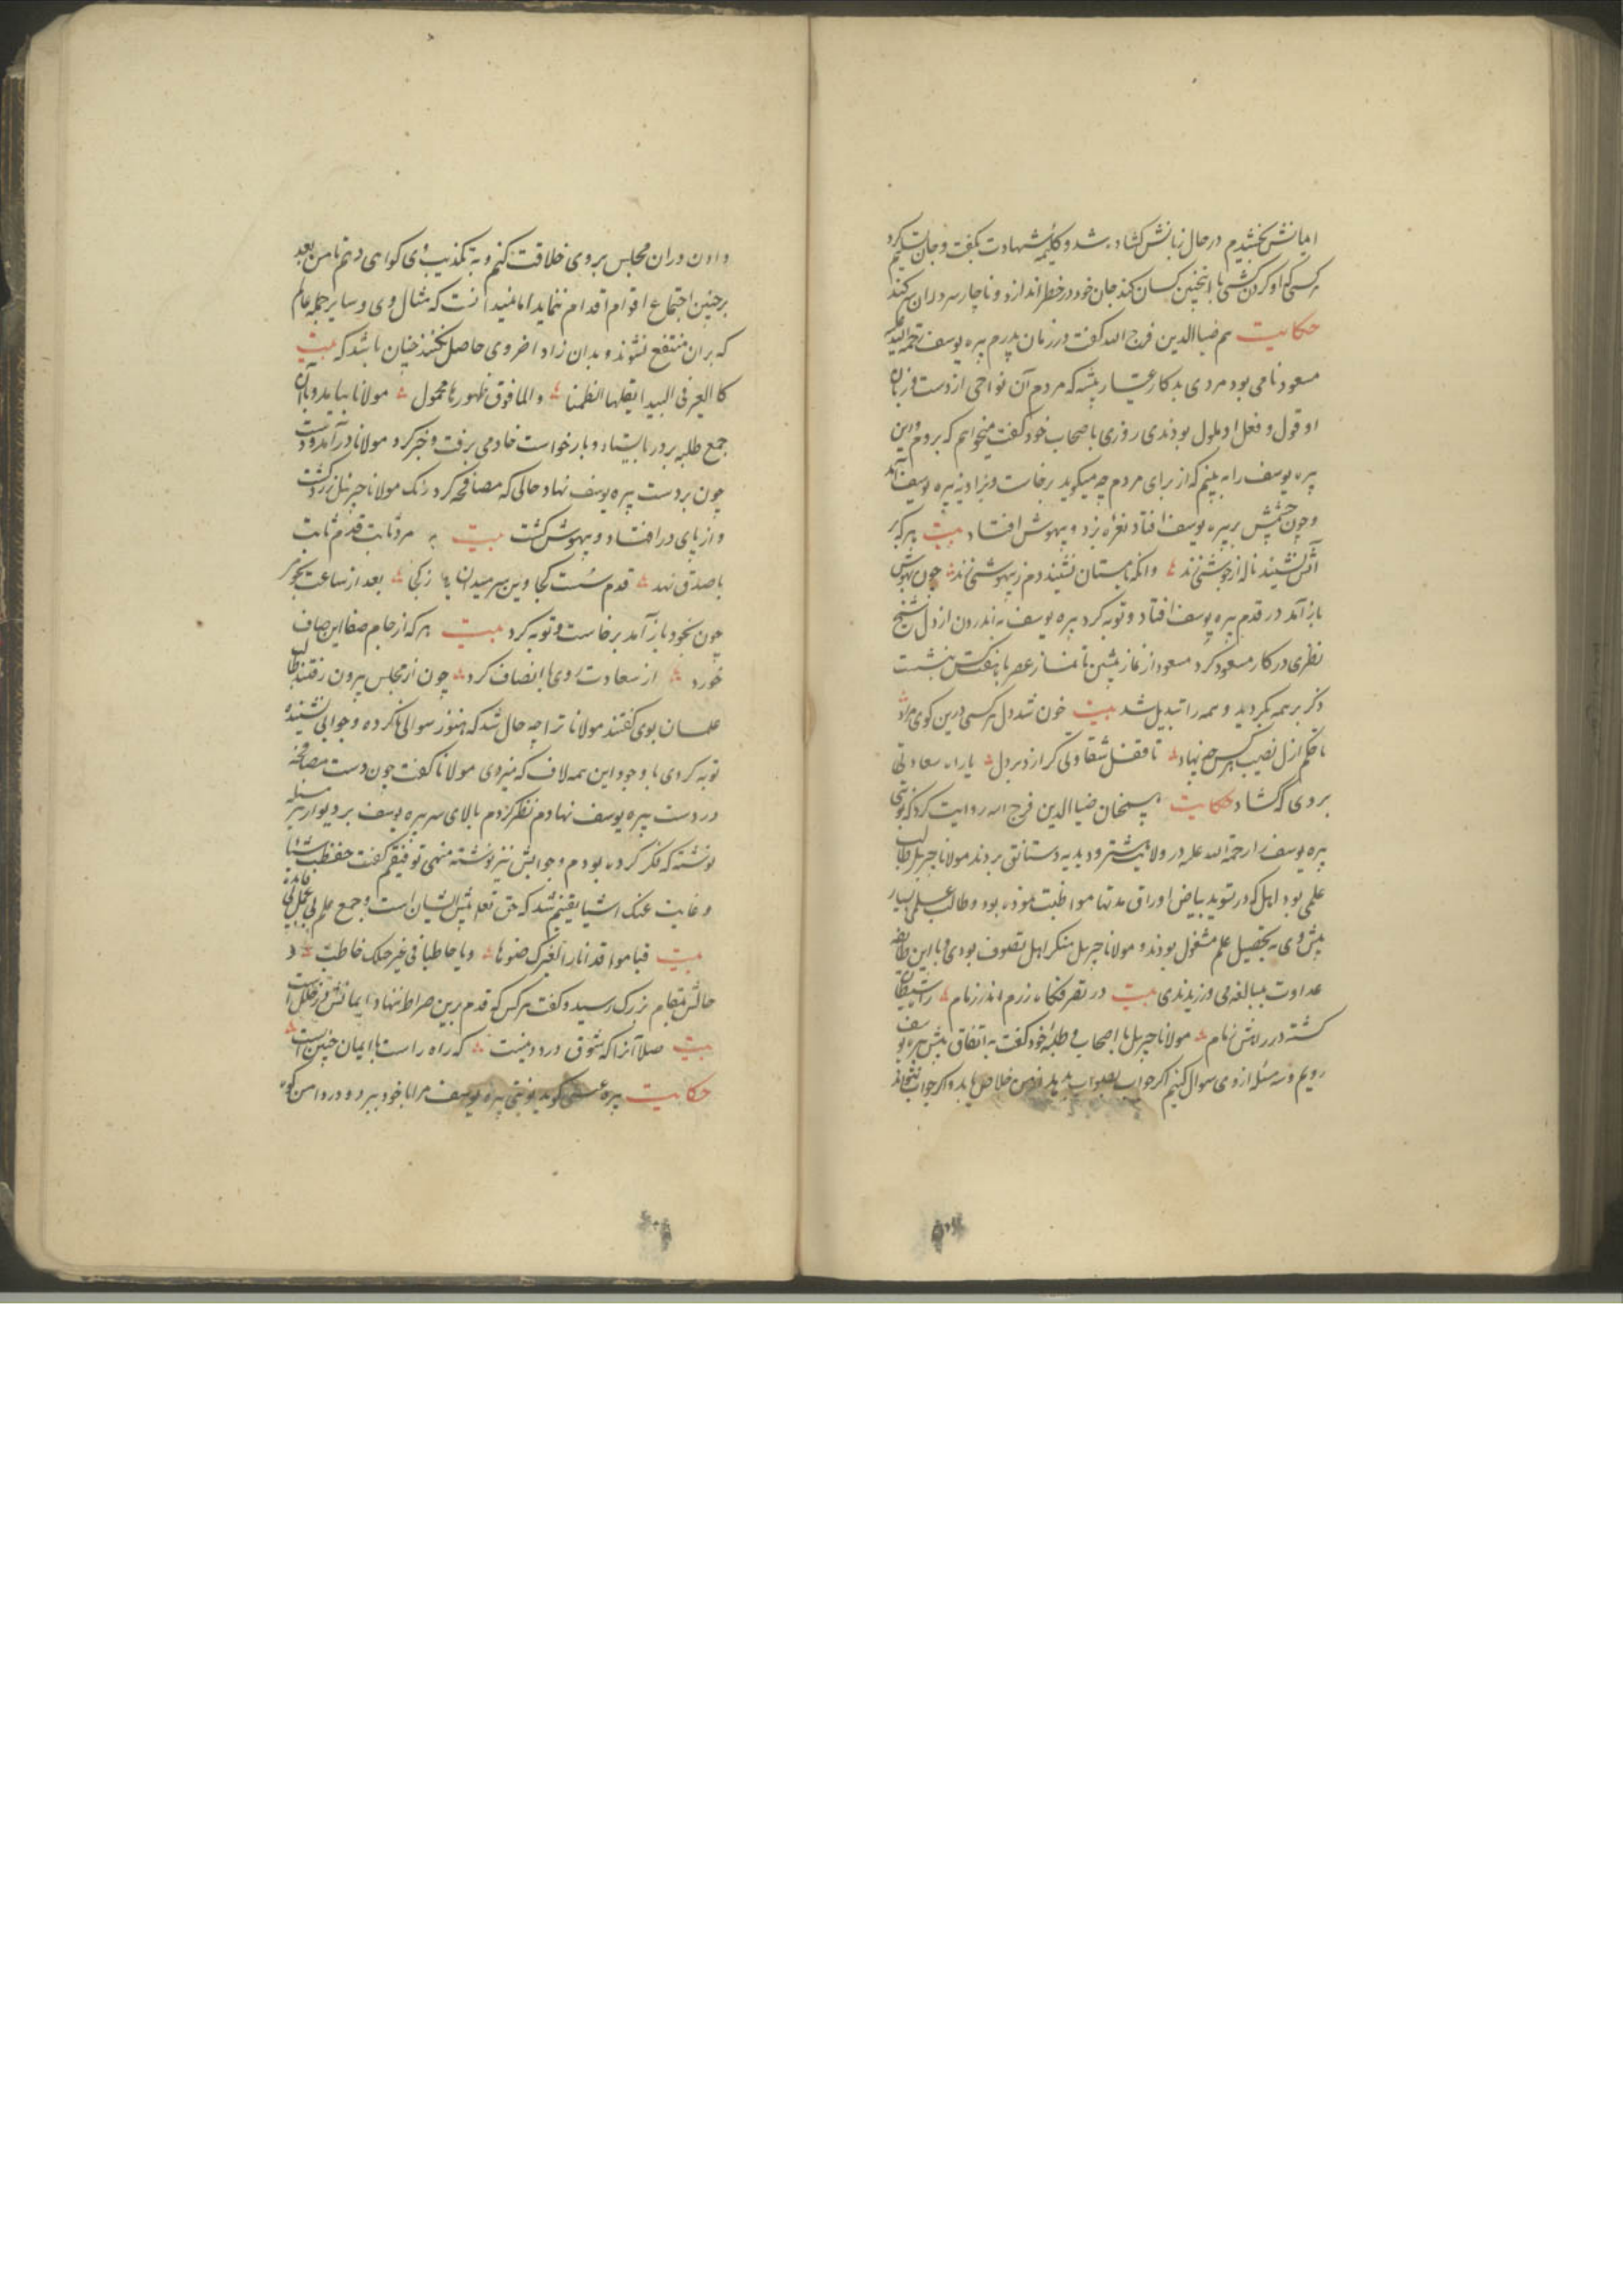 ایمانش بخشیدم در حال زبانش کشاده شد و کلمه شهادت بکفت و جان تسلیم کرد
هر کسی کو کردن کشی با اینچنین کسان کند جان خود در خطر اندازد و ناچار سر دران کند
حکایت هم ضیا الدین فرج الله کفت در زمان پدرم پیره یوسف رحمة الله علیه
مسعود نامی بود مردی بدکار عیار پیشه که مردم آن نواحی از دست و زبان
او قول و فعل او ملول بودندی روزی با صحاب خود کفت میخواهم که بروم و این
پیره یوسف را به بینم که از برای مردم چه میکوید برخاست و نزدیک پیره یوسف آمد
و چون چشمش بر پیره یوسف افتاد نعره بزد و بیهوش افتاد بیت هر که بر
آتش نشیند ناله از جوشش زند وانکه با مستان نشیند دم ز بیهوشی زند چون بهوش
باز آمد در قدم پیره یوسف افتاد و توبه کرد پیره یوسف به اندرون از دل شیخ
نظری در کار مسعود کرد مسعود از نماز پیشین تا نماز عصر با بنشست
ذکر بر همه بکردید و همه را تبدیل شد بیت خون شد دل هر کسی درین کوی مراد
تا حکم ازل نصیب هر کس چه نهاد تا قفل شقاوتی که از در دل یا راه سعادتی
بروی که کشاد حکایت همچنان ضیا الدین فرج الله روایت کرد که نوبتی
پیره یوسف را رحمة الله علیه در ولایت بیشترود بدیه دستانق بردند مولانا جبریل طالب
علمی بود اهل که در تسوید بیاض اوراق مدتها مواظبت نموده بود و طالب علمی بسیار
پیش وی به تحصیل علم مشغول بودند و مولانا جبریل منکر اهل تصوف بودی و با این طایفه
عداوت بمبالغه می ورزیدندی بیت در تفرقکاه رزم اندر زنام را شیطان
کشته در راهش نام مولانا جبریل با اصحاب و طلبه خود کفت به اتفاق پیش پیره یوسف
رویم و سه مسئله از وی سوال کنیم اکر جواب بصواب بدهد از من خلاص یابد و اکر جواب نتواند
دادن دران مجلس بروی خلاقت کنیم و به تکذیب وی کواهی دهم تا من بعد
بر چنین اجتماع اقوام اقدام ننماید اما نمیدانست که مثال وی و سایر جمله عالم
که بران منتفع نشوند و بدان زاد اخروی حاصل نکنند چنان باشد که بیت
کالعیر فی البیدا یقتلها الظما و الما فوق ظهورها محمول مولانا بیامد و با آن
جمع طلبه بر در بایستاد و بار خواست خادمی برفت و خبر کرد مولانا درآمد و دست
چون بر دست پیره یوسف نهاد حالی که مصافحه کرد رنک مولانا جبریل زرد کشت
و از پای در افتاد و بیهوش کشت بیت به مرد ثابت قدم ثابت
با صدق نهد قدم سست کجا وین سر میدان ها ز کجا بعد از ساعت بخود
چون بخود باز آمد برخاست و توبه کرد بیت هر که از جام صفا این صاف
خورد از سعادت روی با انصاف کرد چون از مجلس بیرون رفتند طالب
علمان بوی کفتند مولانا ترا چه حال شد که هنوز سوالی ناکرده و جوابی نشنیده
توبه کردی با وجود این همه لاف که میزدی مولانا کفت چون دست مصافحه
در دست پیره یوسف نهادم نظر کردم بالای سر پیره یوسف بر دیوار هر سه مسئله
نوشته که فکر کرده بودم و جوابش نیز نوشته منهی توفیقم کفت حفظت شیئا
و غابت عنک اشیا یقینم شد که حق تعلیم ایشان است و جمع علم بی عمل بی فایده
بیت فیا موقدا نارا لغیرک ضوها و یا حاطبا فی غیر حبلک حاطبت
حالش بمقام بزرک رسید و کفت هر کس که قدم برین صراط ننهاد ایمانش در خلل است
بیت صلا آنرا که شوق درد دنیست که راه راست با ایمان چنین است
حکایت پیره عیسی کوید نوبتی پیره یوسف مرا با خود ببرد و در دامن کوه